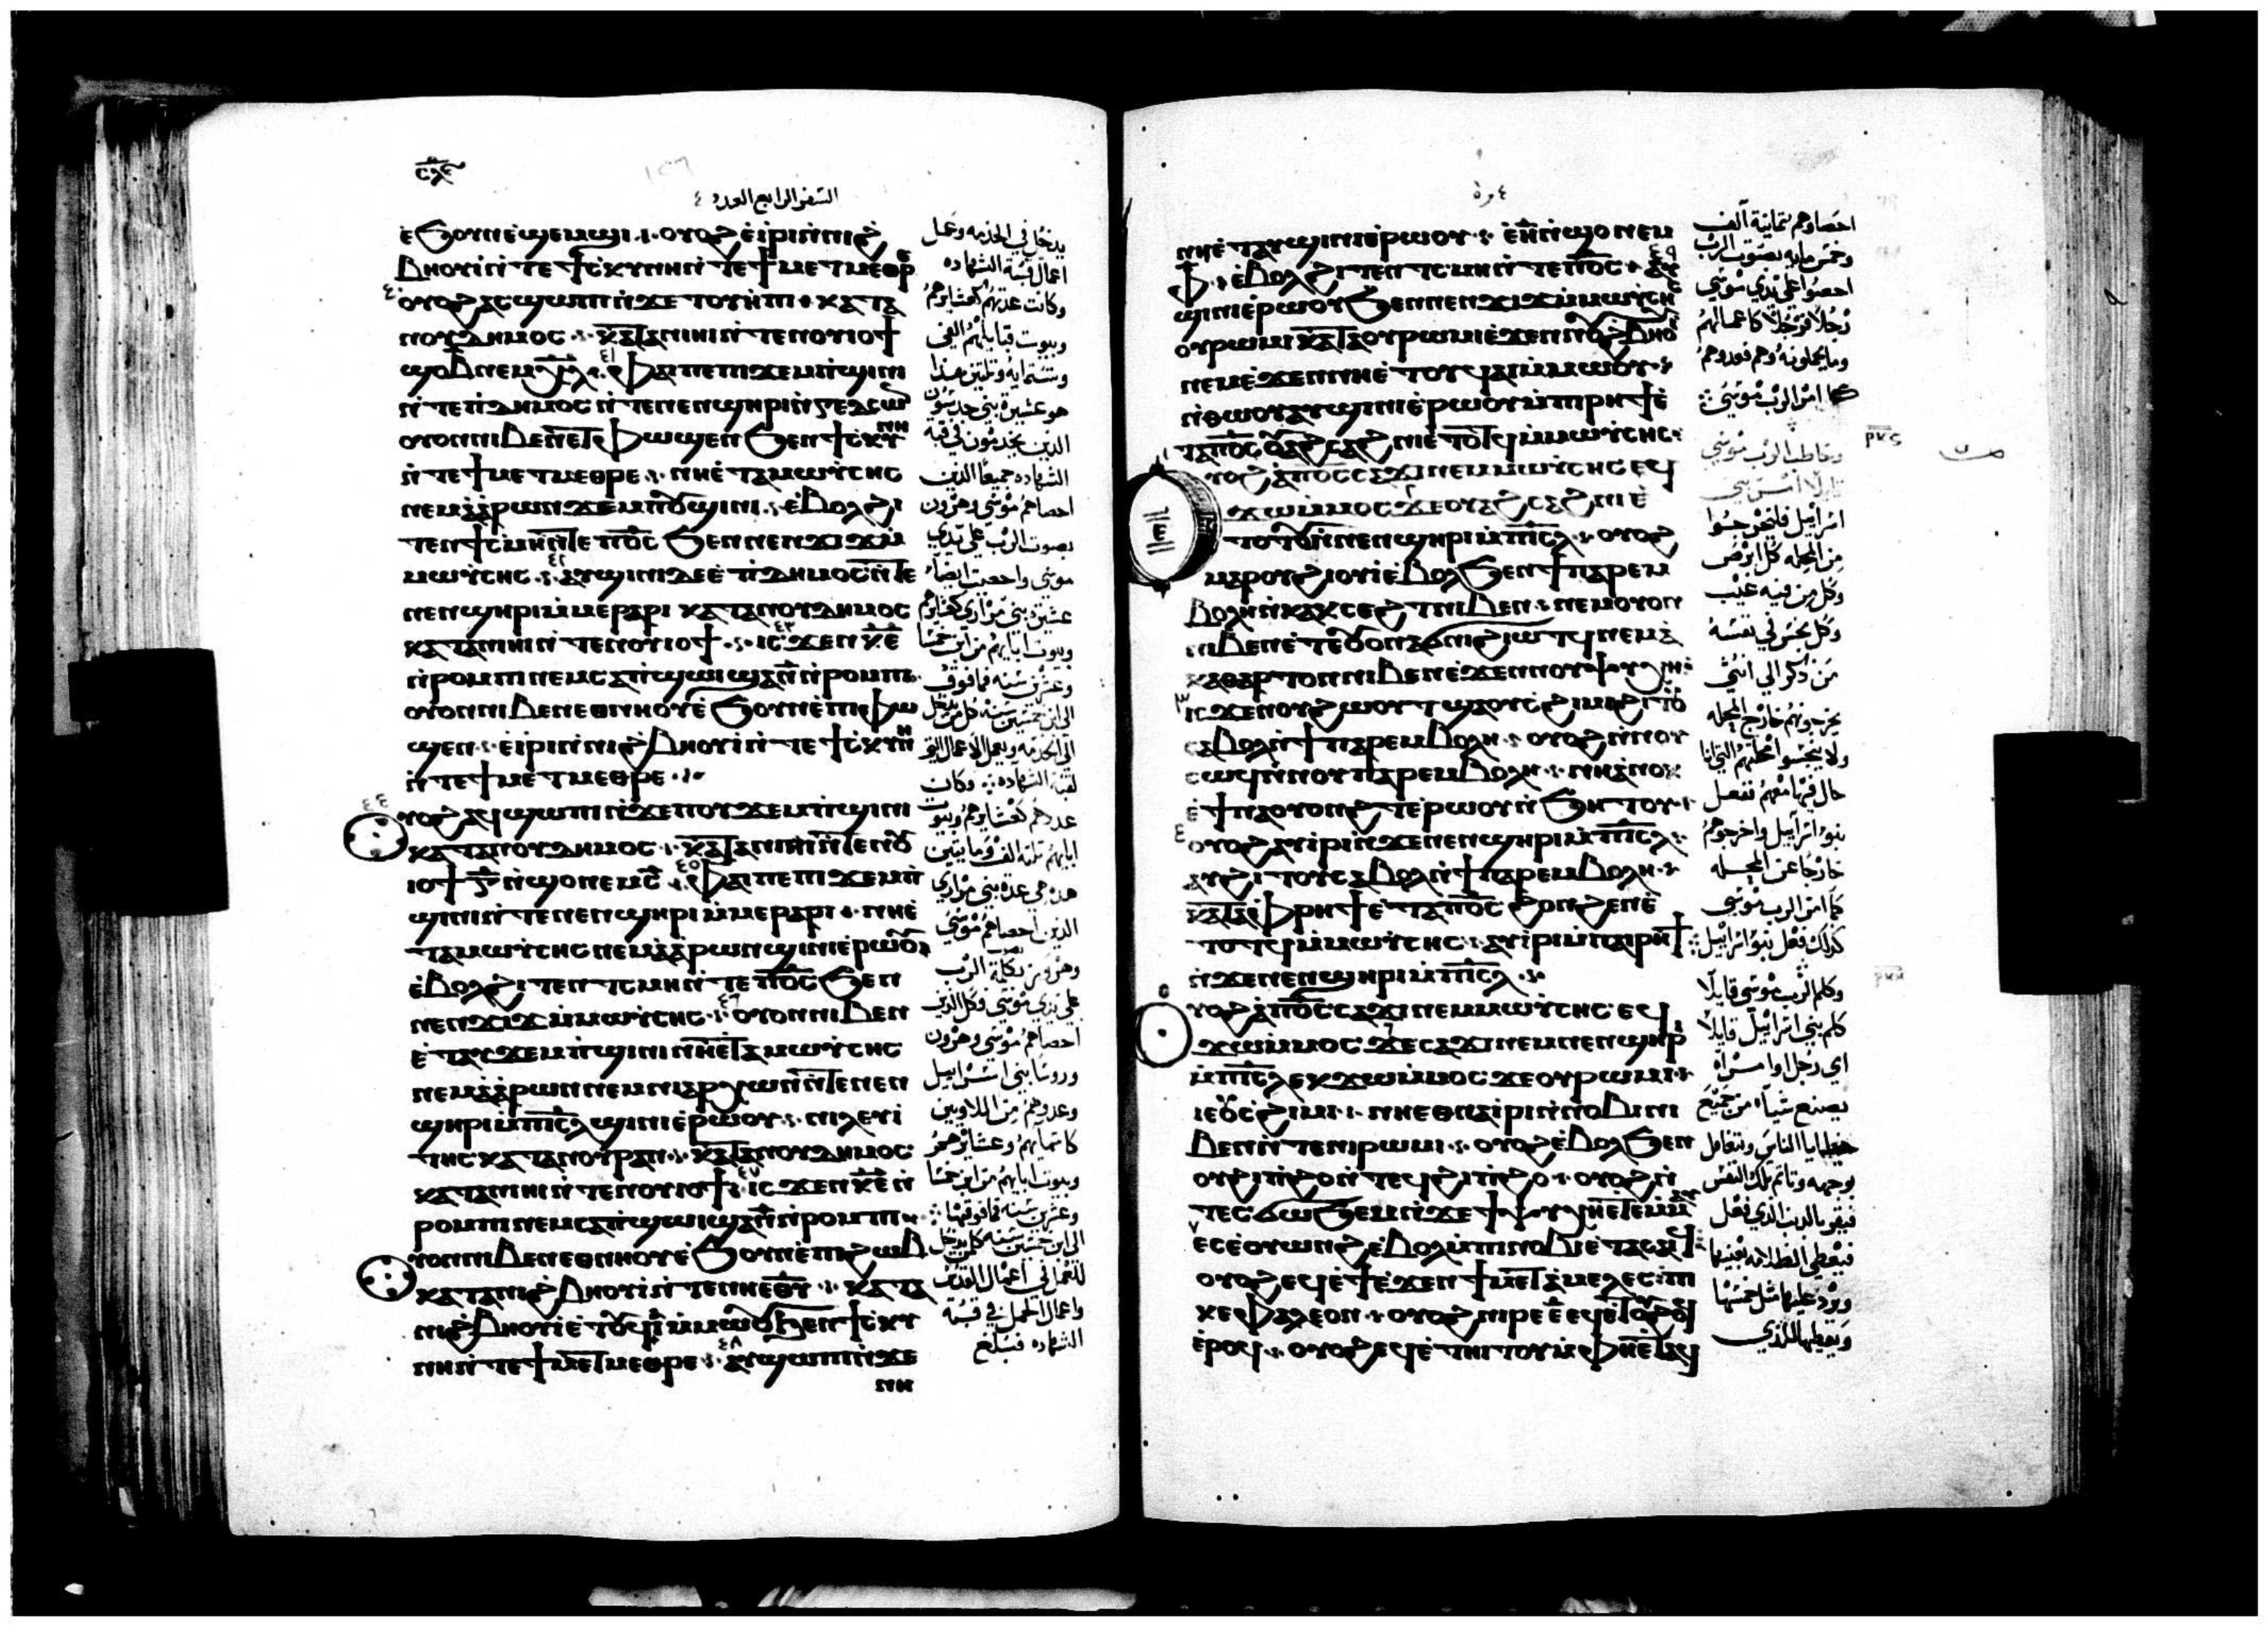 ⲥⲗⲉ
السفر الرابع العدد ٤
ⲉϧⲟⲩⲛ ⲉϣⲉⲙϣⲓ ⲟⲩⲟϩ ⲉⲓⲣⲓ ⲛⲛⲓϩ
ⲃⲏⲟⲩⲓ ⲛⲧⲉ ϯⲥⲕⲩⲛⲏ ⲛⲧⲉ ϯⲙⲉⲧⲙⲉⲑⲣⲉ
ⲟⲩⲟϩ ⲁⲥϣⲱⲡⲓ ⲛϫⲉ ⲧⲟⲩⲏⲡⲓ ⲕⲁⲧⲁ
ⲛⲟⲩⲇⲏⲙⲟⲥ ⲕⲁⲧⲁ ⲛⲓⲏⲓ ⲛⲧⲉ ⲛⲟⲩⲓⲟϯ
ⲫⲁⲓ ⲡⲉ ⲡϫⲉⲙⲡϣⲓⲛⲓ
ⲛⲧⲉ ⲡⲇⲏⲙⲟⲥ ⲛⲧⲉ ⲛⲉⲛϣⲏⲣⲓ ⲛⲅⲉⲇⲥⲱⲛ
ⲟⲩⲟⲛ ⲛⲓⲃⲉⲛ ⲉⲧⲫⲱϣⲉⲛ ϧⲉⲛ ϯⲥⲕⲩⲛⲏ
ⲛⲧⲉ ϯⲙⲉⲧⲙⲉⲑⲣⲉ ⲛⲏ ⲉⲧⲁ ⲙⲱⲩⲥⲏⲥ
ⲛⲉⲙ ⲁⲁⲣⲱⲛ ϫⲉⲙⲡⲟⲩϣⲓⲛⲓ ⲉⲃⲟⲗϩⲓ
ⲧⲉⲛ ϯⲥⲙⲏ ⲛⲧⲉ ⲡϭⲥ ϧⲉⲛ ⲛⲉⲛϫⲓϫ ⲙ
ⲙⲱⲩⲥⲏⲥ ⲁⲩϣⲓⲛⲓ ⲇⲉ ⲉⲡⲇⲏⲙⲟⲥ ⲛⲧⲉ
ⲛⲉⲛϣⲏⲣⲓ ⲙⲙⲉⲣⲁⲣⲓ ⲕⲁⲧⲁ ⲛⲟⲩⲇⲏⲙⲟⲥ
ⲕⲁⲧⲁ ⲛⲓⲏⲓ ⲛⲧⲉ ⲛⲟⲩⲓⲟϯ ⲓⲥϫⲉⲛ ⲕⲉ
ⲛⲣⲟⲙⲡⲓ ⲛⲉⲙ ⲥⲁⲡϣⲱⲓ ϣⲁ ⲛ ⲛⲣⲟⲙⲡⲓ
ⲟⲩⲟⲛ ⲛⲓⲃⲉⲛ ⲉⲑⲛⲏⲟⲩ ⲉϧⲟⲩⲛ ⲉⲡⲓⲫⲱ
ϣⲉⲛ ⲉⲓⲣⲓ ⲛⲛⲓϩⲃⲏⲟⲩⲓ ⲛⲧⲉ ϯⲥⲕⲩⲛⲏ
ⲛⲧⲉ ϯⲙⲉⲧⲙⲉⲑⲣⲉ
ⲟⲩⲟϩ ⲁϥϣⲱⲡⲓ ⲛϫⲉ ⲡⲟⲩϫⲉⲙⲡϣⲓⲛⲓ
ⲕⲁⲧⲁ ⲛⲟⲩⲇⲏⲙⲟⲥ ⲕⲁⲧⲁ ⲛⲓⲏⲓ ⲛⲧⲉ ⲛⲟⲩ
ⲓⲟϯ ⲅ ⲛϣⲟ ⲛⲉⲙ ⲥ ⲫⲁⲓ ⲡⲉ ⲡϫⲉⲙⲡ
ϣⲓⲛⲓ ⲛⲧⲉ ⲛⲉⲛϣⲏⲣⲓ ⲙⲙⲉⲣⲁⲣⲓ ⲛⲏ ⲉ
ⲧⲁ ⲙⲱⲩⲥⲏⲥ ⲛⲉⲙ ⲁⲁⲣⲱⲛ ϣⲓⲛⲓ ⲉⲣⲱⲟⲩ
ⲉⲃⲟⲗϩⲓⲧⲉⲛ ⲧⲥⲙⲏ ⲛⲧⲉ ⲡϭⲥ ϧⲉⲛ
ⲛⲉⲛϫⲓϫ ⲙⲙⲱⲩⲥⲏⲥ ⲟⲩⲟⲛ ⲛⲓⲃⲉⲛ
ⲉⲧⲁⲩϫⲉⲙⲡϣⲓⲛⲓ ⲛⲏ ⲉⲧⲁ ⲙⲱⲩⲥⲏⲥ
ⲛⲉⲙ ⲁⲁⲣⲱⲛ ⲛⲉⲙ ⲛⲓⲁⲣⲭⲱⲛ ⲛⲧⲉ ⲛⲉⲛ
ϣⲏⲣⲓ ⲙⲡⲓⲥⲗ ϣⲓⲛⲓ ⲉⲣⲱⲟⲩ ⲛⲓⲗⲉⲩⲓ
ⲧⲏⲥ ⲕⲁⲧⲁ ⲛⲟⲩⲣⲁⲛ ⲕⲁⲧⲁ ⲛⲟⲩⲇⲏⲙⲟⲥ
ⲕⲁⲧⲁ ⲛⲓⲏⲓ ⲛⲧⲉ ⲛⲟⲩⲓⲟϯ ⲓⲥϫⲉⲛ ⲕⲉ ⲛ
ⲣⲟⲙⲡⲓ ⲛⲉⲙ ⲥⲁⲡϣⲱⲓ ϣⲁ ⲛ ⲛⲣⲟⲙⲡⲓ
ⲟⲩⲟⲛ ⲛⲓⲃⲉⲛ ⲉⲑⲛⲏⲟⲩ ⲉϧⲟⲩⲛ ⲉⲡⲓϩⲱⲃ
ⲕⲁⲧⲁ ⲛⲓϩⲃⲏⲟⲩⲓ ⲛⲧⲉ ⲛⲏ ⲉⲑⲩ ⲕⲁⲧⲁ
ⲛⲓϩⲃⲏⲟⲩⲓ ⲉⲧⲟⲩϥⲓ ⲙⲙⲱⲟⲩ ϧⲉⲛ ϯⲥⲕⲩ
ⲛⲏ ⲛⲧⲉ ϯⲙⲉⲧⲙⲉⲑⲣⲉ ⲁⲩϣⲱⲡⲓ ⲛϫⲉ
ⲛⲏ
يدخل في الخدمه وعمل
اعمال قبة الشهاده
وكانت عدتهم كعشايرهم
وبيوت قبايلهم الفين
وستمايه وتلتين هذا
هو عشيرة بني جدسون
الذين يخدمون في قبة
الشهاده جميعا الذين
احصاهم موسى وهرون
بصوت الرب على يدي
موسى واحصيت ايضا
عشيرة بني مراري كعشايرهم
وبيوت ابايهم من ابن خمسا
وعشرين سنه فما فوق
الى ابن خمسين سنه كل من يدخل
الى الخدمه ويعمل الاعمال التي
لقبة الشهاده وكان
عددهم كعشايرهم وبيوت
ابايهم تلتة الف ومايتين
هذه هي عدة بني مراري
الذين احصاهم موسى
وهرون بكلمة الرب
على يدي موسى وكل الذين
احصاهم موسى وهرون
وروسا بني اسراييل
وعدوهم من اللاويين
كاسمايهم وعشايرهم
وبيوت ابايهم من ابن خمسا
وعشرين سنه فما فوقها
الى ابن خمسين سنه كلمن يدخل
للعمل في اعمال القدس
واعمال الحمل في قبة
الشهاده فبلغ
ⲛⲏ ⲉⲧⲁⲩϣⲓⲛⲓ ⲉⲣⲱⲟⲩ ⲏ ⲛϣⲟ ⲛⲉⲙ
ⲫ ⲉⲃⲟⲗϩⲓⲧⲉⲛ ⲧⲥⲙⲏ ⲛⲧⲉ ⲡϭⲥ ⲁⲩ
ϣⲓⲛⲓ ⲉⲣⲱⲟⲩ ϧⲉⲛ ⲛⲉⲛϫⲓϫ ⲙⲙⲱⲩⲥⲏⲥ
ⲟⲩⲣⲱⲙⲓ ⲕⲁⲧⲁ ⲟⲩⲣⲱⲙⲓ ⲉϫⲉⲛ ⲛⲟⲩϩⲃⲏⲟⲩⲓ
ⲛⲉⲙ ⲉϫⲉⲛ ⲛⲏ ⲉⲧⲟⲩϥⲁⲓ ⲙⲙⲱⲟⲩ
ⲛⲑⲱⲟⲩ ⲁⲩϣⲓⲛⲓ ⲉⲣⲱⲟⲩ ⲙⲡⲣⲏϯ ⲉ
ⲧⲁ ⲡϭⲥ ⲟⲩⲁϩⲥⲁϩⲛⲓ ⲉⲧⲟⲧϥ ⲙⲙⲱⲩⲥⲏⲥ
ⲟⲩⲟϩ ⲁ ⲡϭⲥ ⲥⲁϫⲓ ⲛⲉⲙ ⲙⲱⲩⲥⲏⲥ ⲉϥ
ϫⲱ ⲙⲙⲟⲥ ϫⲉ ⲟⲩⲁϩⲥⲁϩⲛⲓ ⲉ
ⲧⲟⲧⲟⲩ ⲛⲛⲉⲛϣⲏⲣⲓ ⲙⲡⲓⲥⲗ ⲟⲩⲟϩ
ⲙⲁⲣⲟⲩϩⲓⲟⲩⲓ ⲉⲃⲟⲗϧⲉⲛ ϯⲡⲁⲣⲉⲙ
ⲃⲟⲗⲏ ⲛⲕⲁⲕⲥⲉϩⲧ ⲛⲓⲃⲉⲛ ⲛⲉⲙ ⲟⲩⲟⲛ
ⲛⲓⲃⲉⲛ ⲉⲧⲉ ⲟⲩⲟⲛ ⲁϭⲛⲓ ϩⲓⲱⲧϥ ⲛⲉⲙ ⲁ
ⲕⲁⲑⲁⲣⲧⲟⲛ ⲛⲓⲃⲉⲛ ⲉϫⲉⲛ ⲛⲟⲩⲯⲩⲭⲏ
ⲓⲥϫⲉⲛ ⲟⲩϩⲱⲟⲩⲧ ϣⲁ ⲟⲩⲥϩⲓⲙⲓ ϩⲓⲧⲟⲩ
ⲥⲁⲃⲟⲗ ⲛϯⲡⲁⲣⲉⲙⲃⲟⲗⲏ ⲟⲩⲟϩ ⲛⲛⲟⲩ
ⲥⲱϥ ⲛⲛⲟⲩⲡⲁⲣⲉⲙⲃⲟⲗⲏ ⲛⲏ ⲁⲛⲟⲕ
ⲉϯⲛⲁⲟⲩⲟⲛϩⲧ ⲉⲣⲱⲟⲩ ⲛϧⲏⲧⲟⲩ
ⲟⲩⲟϩ ⲁⲩⲓⲣⲓ ⲛϫⲉ ⲛⲉⲛϣⲏⲣⲓ ⲙⲡⲓⲥⲗ
ⲁⲩϩⲓⲧⲟⲩ ⲥⲁⲃⲟⲗ ⲛϯⲡⲁⲣⲉⲙⲃⲟⲗⲏ
ⲕⲁⲧⲁ ⲫⲣⲏϯ ⲉⲧⲁ ⲡϭⲥ ϩⲟⲛϩⲉⲛ ⲉ
ⲧⲟⲧϥ ⲙⲙⲱⲩⲥⲏⲥ ⲁⲩⲓⲣⲓ ⲙⲡⲁⲓⲣⲏϯ
ⲛϫⲉ ⲛⲉⲛϣⲏⲣⲓ ⲙⲡⲓⲥⲗ
ⲟⲩⲟϩ ⲁ ⲡϭⲥ ⲥⲁϫⲓ ⲛⲉⲙ ⲙⲱⲩⲥⲏⲥ ⲉϥ
ϫⲱ ⲙⲙⲟⲥ ϫⲉ ⲥⲁϫⲓ ⲛⲉⲙ ⲛⲉⲛϣⲏⲣⲓ
ⲙⲡⲓⲥⲗ ⲉⲕϫⲱ ⲙⲙⲟⲥ ϫⲉ ⲟⲩⲣⲱⲙⲓ
ⲓⲉ ⲟⲩⲥϩⲓⲙⲓ ⲛⲏ ⲉⲑⲛⲁⲓⲣⲓ ⲛⲛⲟⲃⲓ ⲛⲓ
ⲃⲉⲛ ⲛⲧⲉ ⲛⲓⲣⲱⲙⲓ ⲟⲩⲟϩ ⲉⲃⲟⲗϧⲉⲛ
ⲟⲩϩⲓⲡϩⲟ ⲛⲧⲉϥϩⲓⲡϩⲟ ⲟⲩⲟϩ ⲛ
ⲧⲉⲥ ϧⲉⲛ ⲛϫⲉ ϯⲯⲩⲭⲏ ⲉⲧⲉⲙⲙⲁⲩ
ⲉⲥⲉⲟⲩⲱⲛϩ ⲉⲃⲟⲗ ⲙⲡⲓⲛⲟⲃⲓ ⲉⲧⲁⲥⲁⲓϥ
ⲟⲩⲟϩ ⲉϥⲉϯ ⲉϫⲉⲛ ϯⲙⲉⲧⲁⲙⲉⲗⲉⲥ ⲡⲓ
ⲕⲉⲫⲁⲗⲉⲟⲛ ⲟⲩⲟϩ ⲡⲓⲣⲉ ⲉ ⲉϥⲉⲧⲟⲩϩⲟϥ
ⲉⲣⲟϥ ⲟⲩⲟϩ ⲉϥⲉⲧⲏⲓⲧⲟⲩ ⲙⲫⲏ ⲉⲧⲁϥ
احصاوهم تمانية الف
وخمس مايه بصوت الرب
احصوا على يدي موسى
رجلا فرجلا كاعمالهم
وما يحملونه وهم فعدوهم
كما امر الرب موسى
وخاطب الرب موسى
قايلا امر بني
اسراييل فليخرجوا
من المحله كل ابرص
وكل من فيه عيب
وكل نجس في نفسه
من ذكر الى انثى
يخرجونهم خارج المحله
ولا ينجسوا محلتهم التي انا
حال فيها معهم ففعل
بنو اسراييل واخرجوهم
خارجا عن المحله
كما امر الرب موسى
كذلك فعل بنو اسراييل
وكلم الرب موسى قايلا
كلم بني اسراييل قايلا
اي رجل او امراه
يصنع شيا من جميع
خطايا الناس وتغافل
بوجهه وتاتم تلك النفس
فيقر بالذنب الذي فعل
فيعطي الظلامه بعينها
ويزد عليها مثل خمسها
ويعطيها للذي
ⲣⲕⲋ